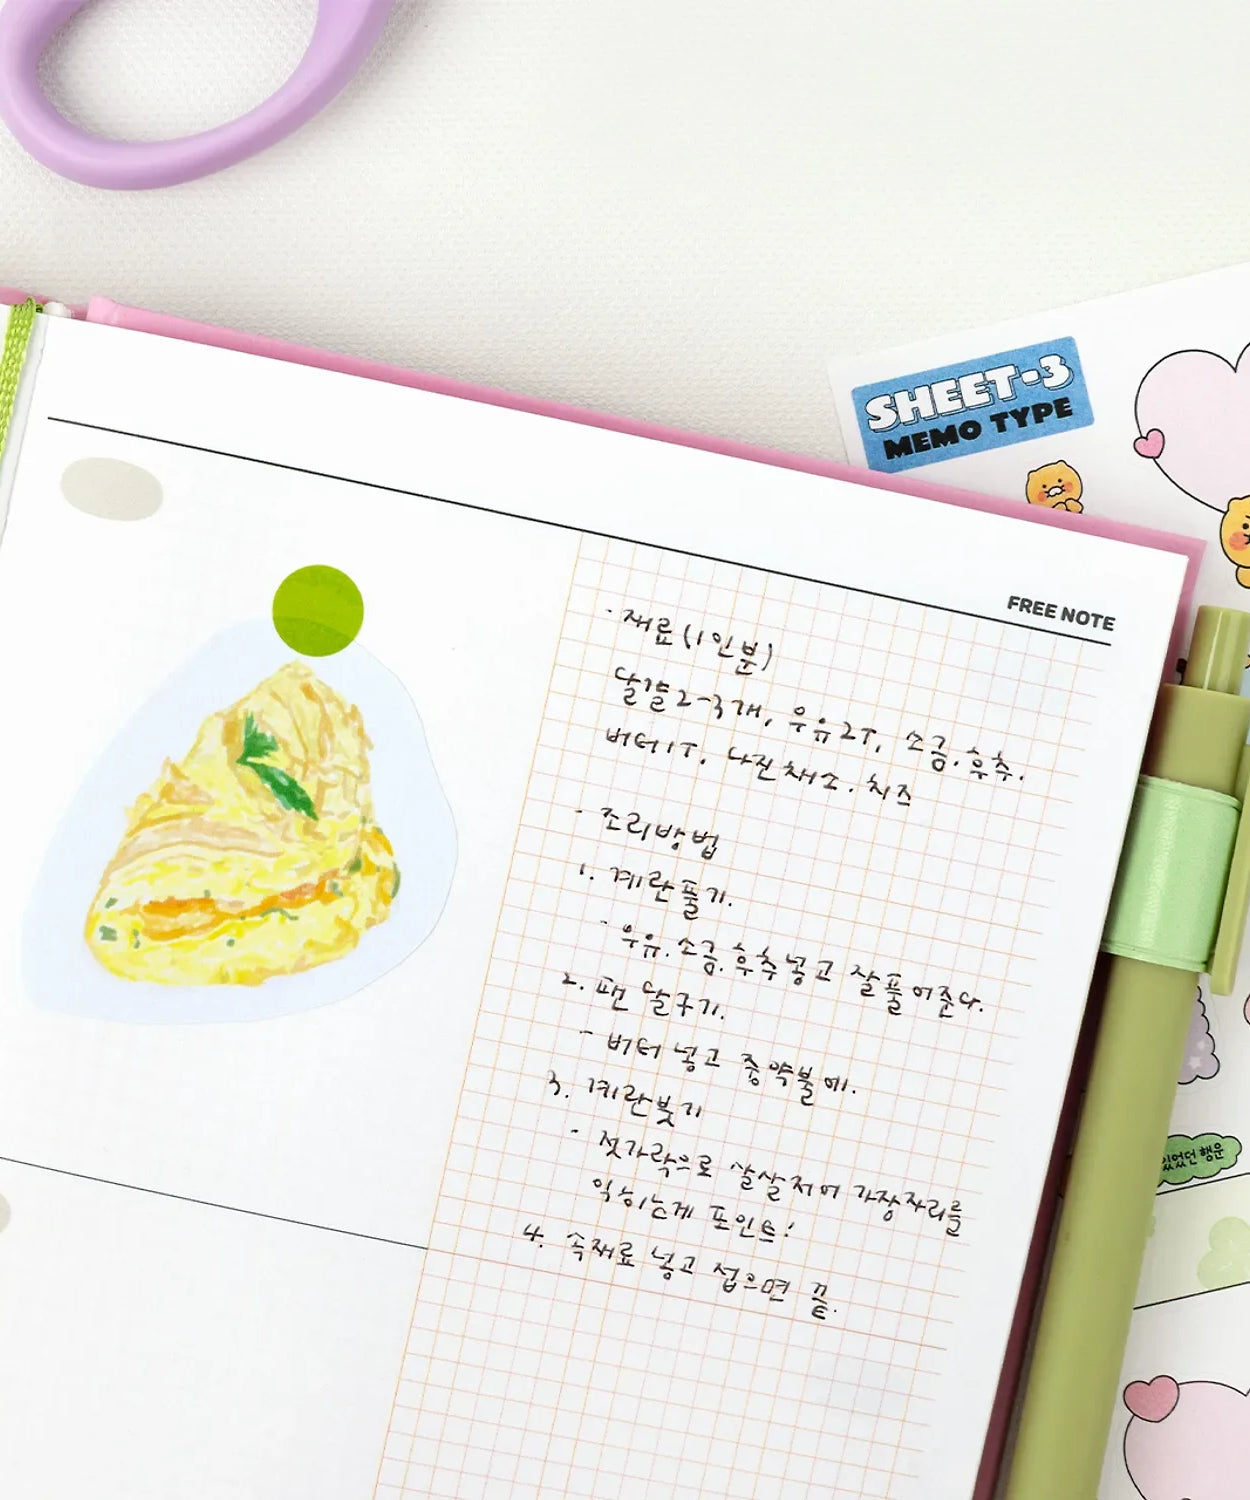 SHEET-3
MEMO TYPE
FREE NOTE
· 재료(1인분)
달걀 2-3개, 우유 2T, 소금.후추.
버터 1T. 다진채소. 치즈
· 조리방법
1. 계란풀기.
- 우유.소금.후추 넣고 잘 풀어준다.
2. 팬 달구기.
- 버터 넣고 중약불에.
3. 계란붓기
- 젓가락으로 살살 저어 가장자리를
익히는게 포인트!
4. 속재료 넣고 접으면 끝.
있었던 행운